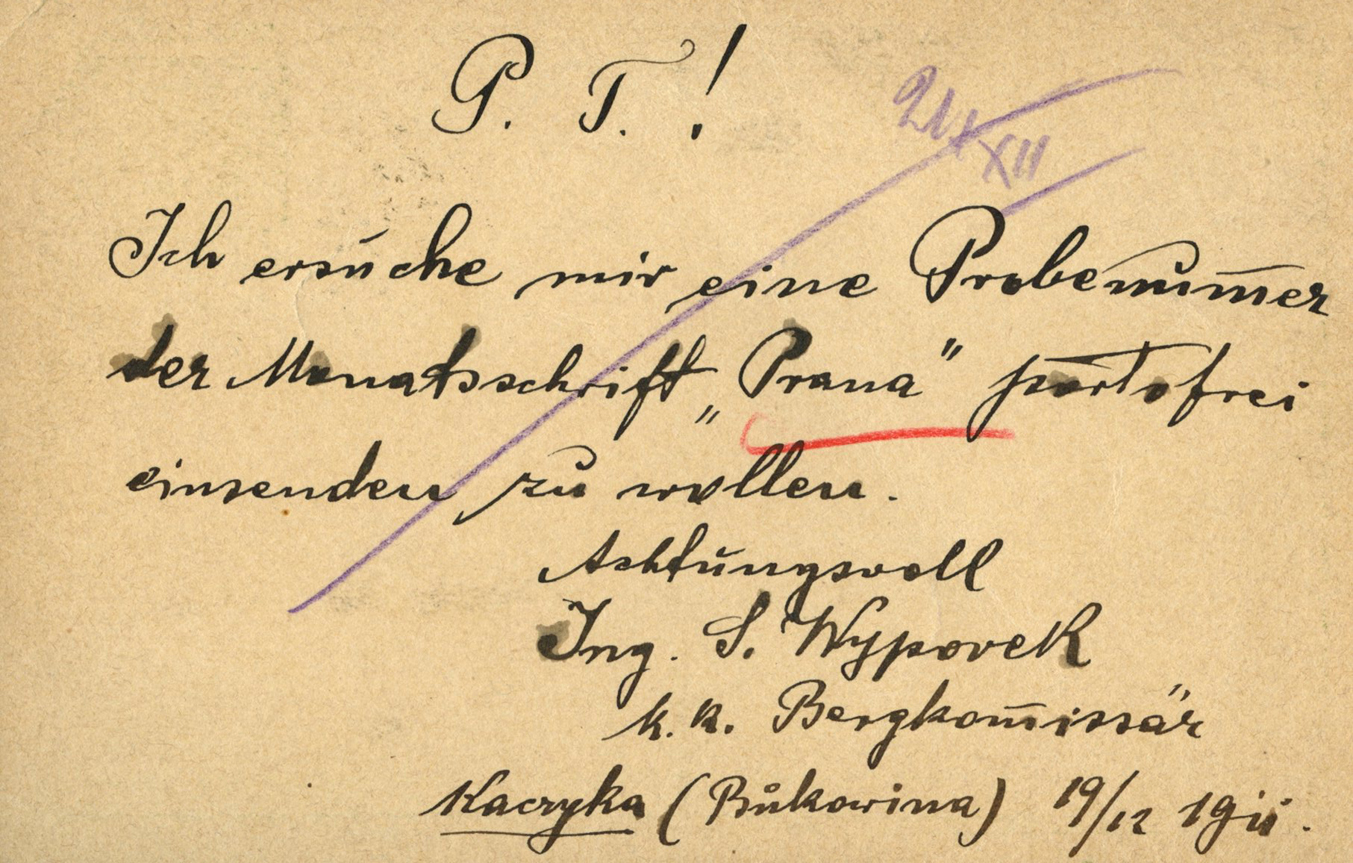 P. T.!
21/XII
Ich ersuche mir eine Probenum̄er
der Monatsschrift „Prana" portofrei
einsenden zu wollen.
Achtungsvoll
Ing. S. Wyporek
k. k. Bergkom̄issär
Kaczyka (Bukowina) 19/12 1911.